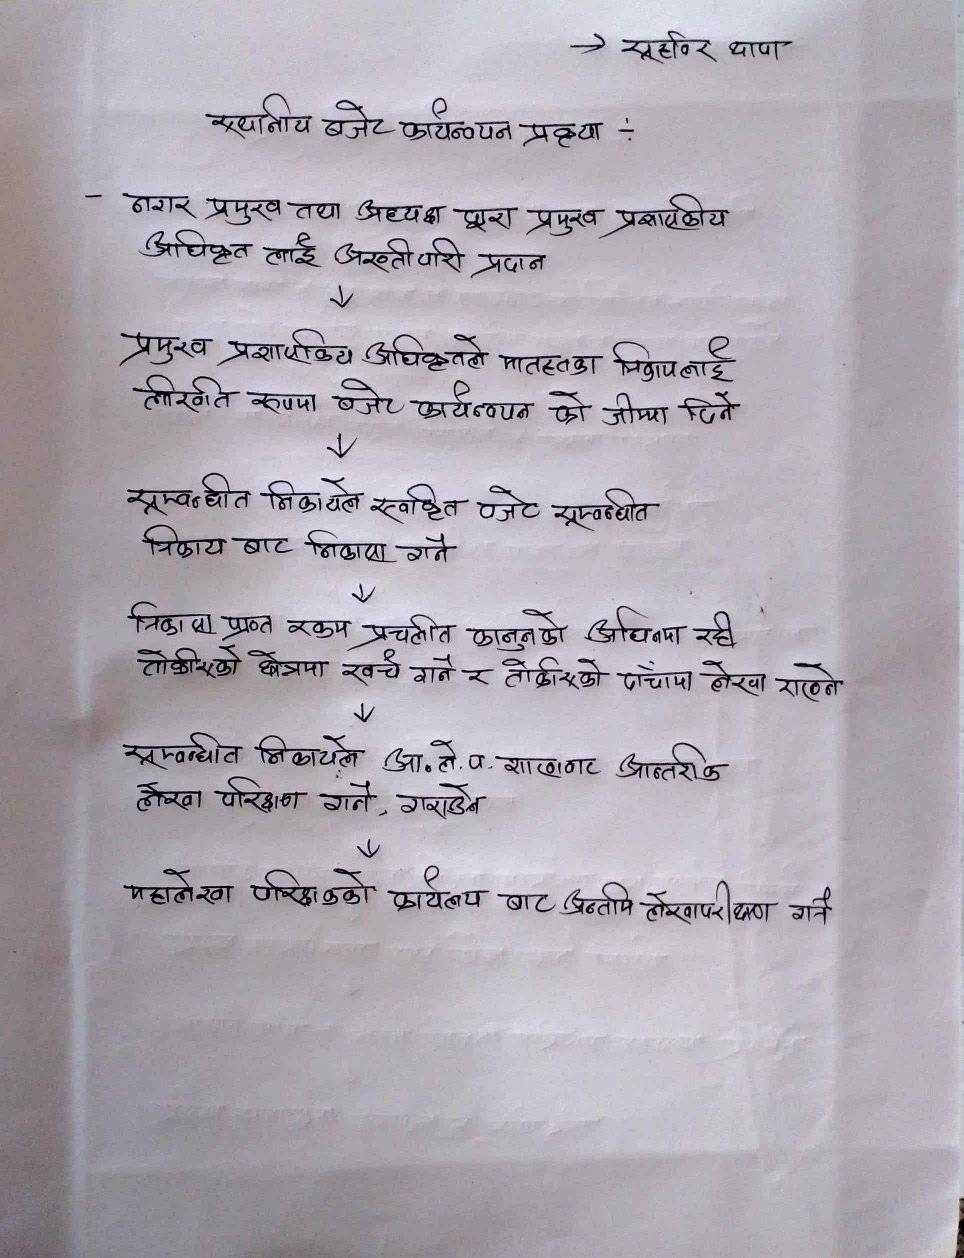 → सूर्हविर थापा
स्थानीय बजेट कार्यन्वयन प्रकृया ÷
- नगर प्रमुख तथा अध्यक्ष द्वारा प्रमुख प्रशासकीय
अधिकृत लाई अख्तीयारी प्रदान
↓
प्रमुख प्रशासकिय अधिकृतले मातहतका निकायलाई
लीखीत रुपमा बजेट कार्यन्वयन को जीम्मा दिने
↓
सम्वन्धीत निकायले स्वीकृत वजेट सम्वन्धीत
निकाय बाट निकासा गर्ने
↓
निकासा प्राप्त रकम प्रचलीत कानुनको अधिनमा रही
तोकीएको क्षेत्रमा खर्च गर्ने र तोकीएको ढाँचामा लेखा राख्ने
↓
सम्वन्धीत निकायले आ.ले.प. शाखाबाट आन्तरीक
लेखा परिक्षण गर्ने, गराउने
↓
महालेखा परिक्षकको कार्यलय बाट अन्तीम लेखापरीक्षण गर्ने